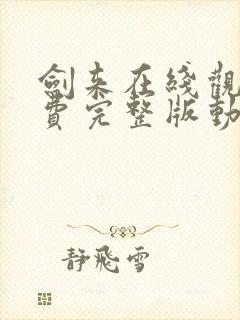 劍来在綫觀
費完整版動
靜飛雪